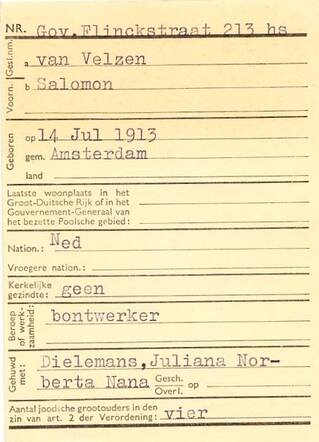 NR. Gov.Flinckstraat 213 hs
Gesl.nm. a van Velzen
Voorn. b Salomon
Geboren op 14 Jul 1913
gem. Amsterdam
land
Laatste woonplaats in het
Groot-Duitsche Rijk of in het
Gouvernement-Generaal van
het bezette Poolsche gebied:
Nation.: Ned
Vroegere nation.:
Kerkelijke
gezindte: geen
Beroep of werkzaamheid: bontwerker
Gehuwd met: Dielemans, Juliana Nor-
berta Nana Gesch. Overl. op
Aantal joodsche grootouders in den
zin van art. 2 der Verordening: vier